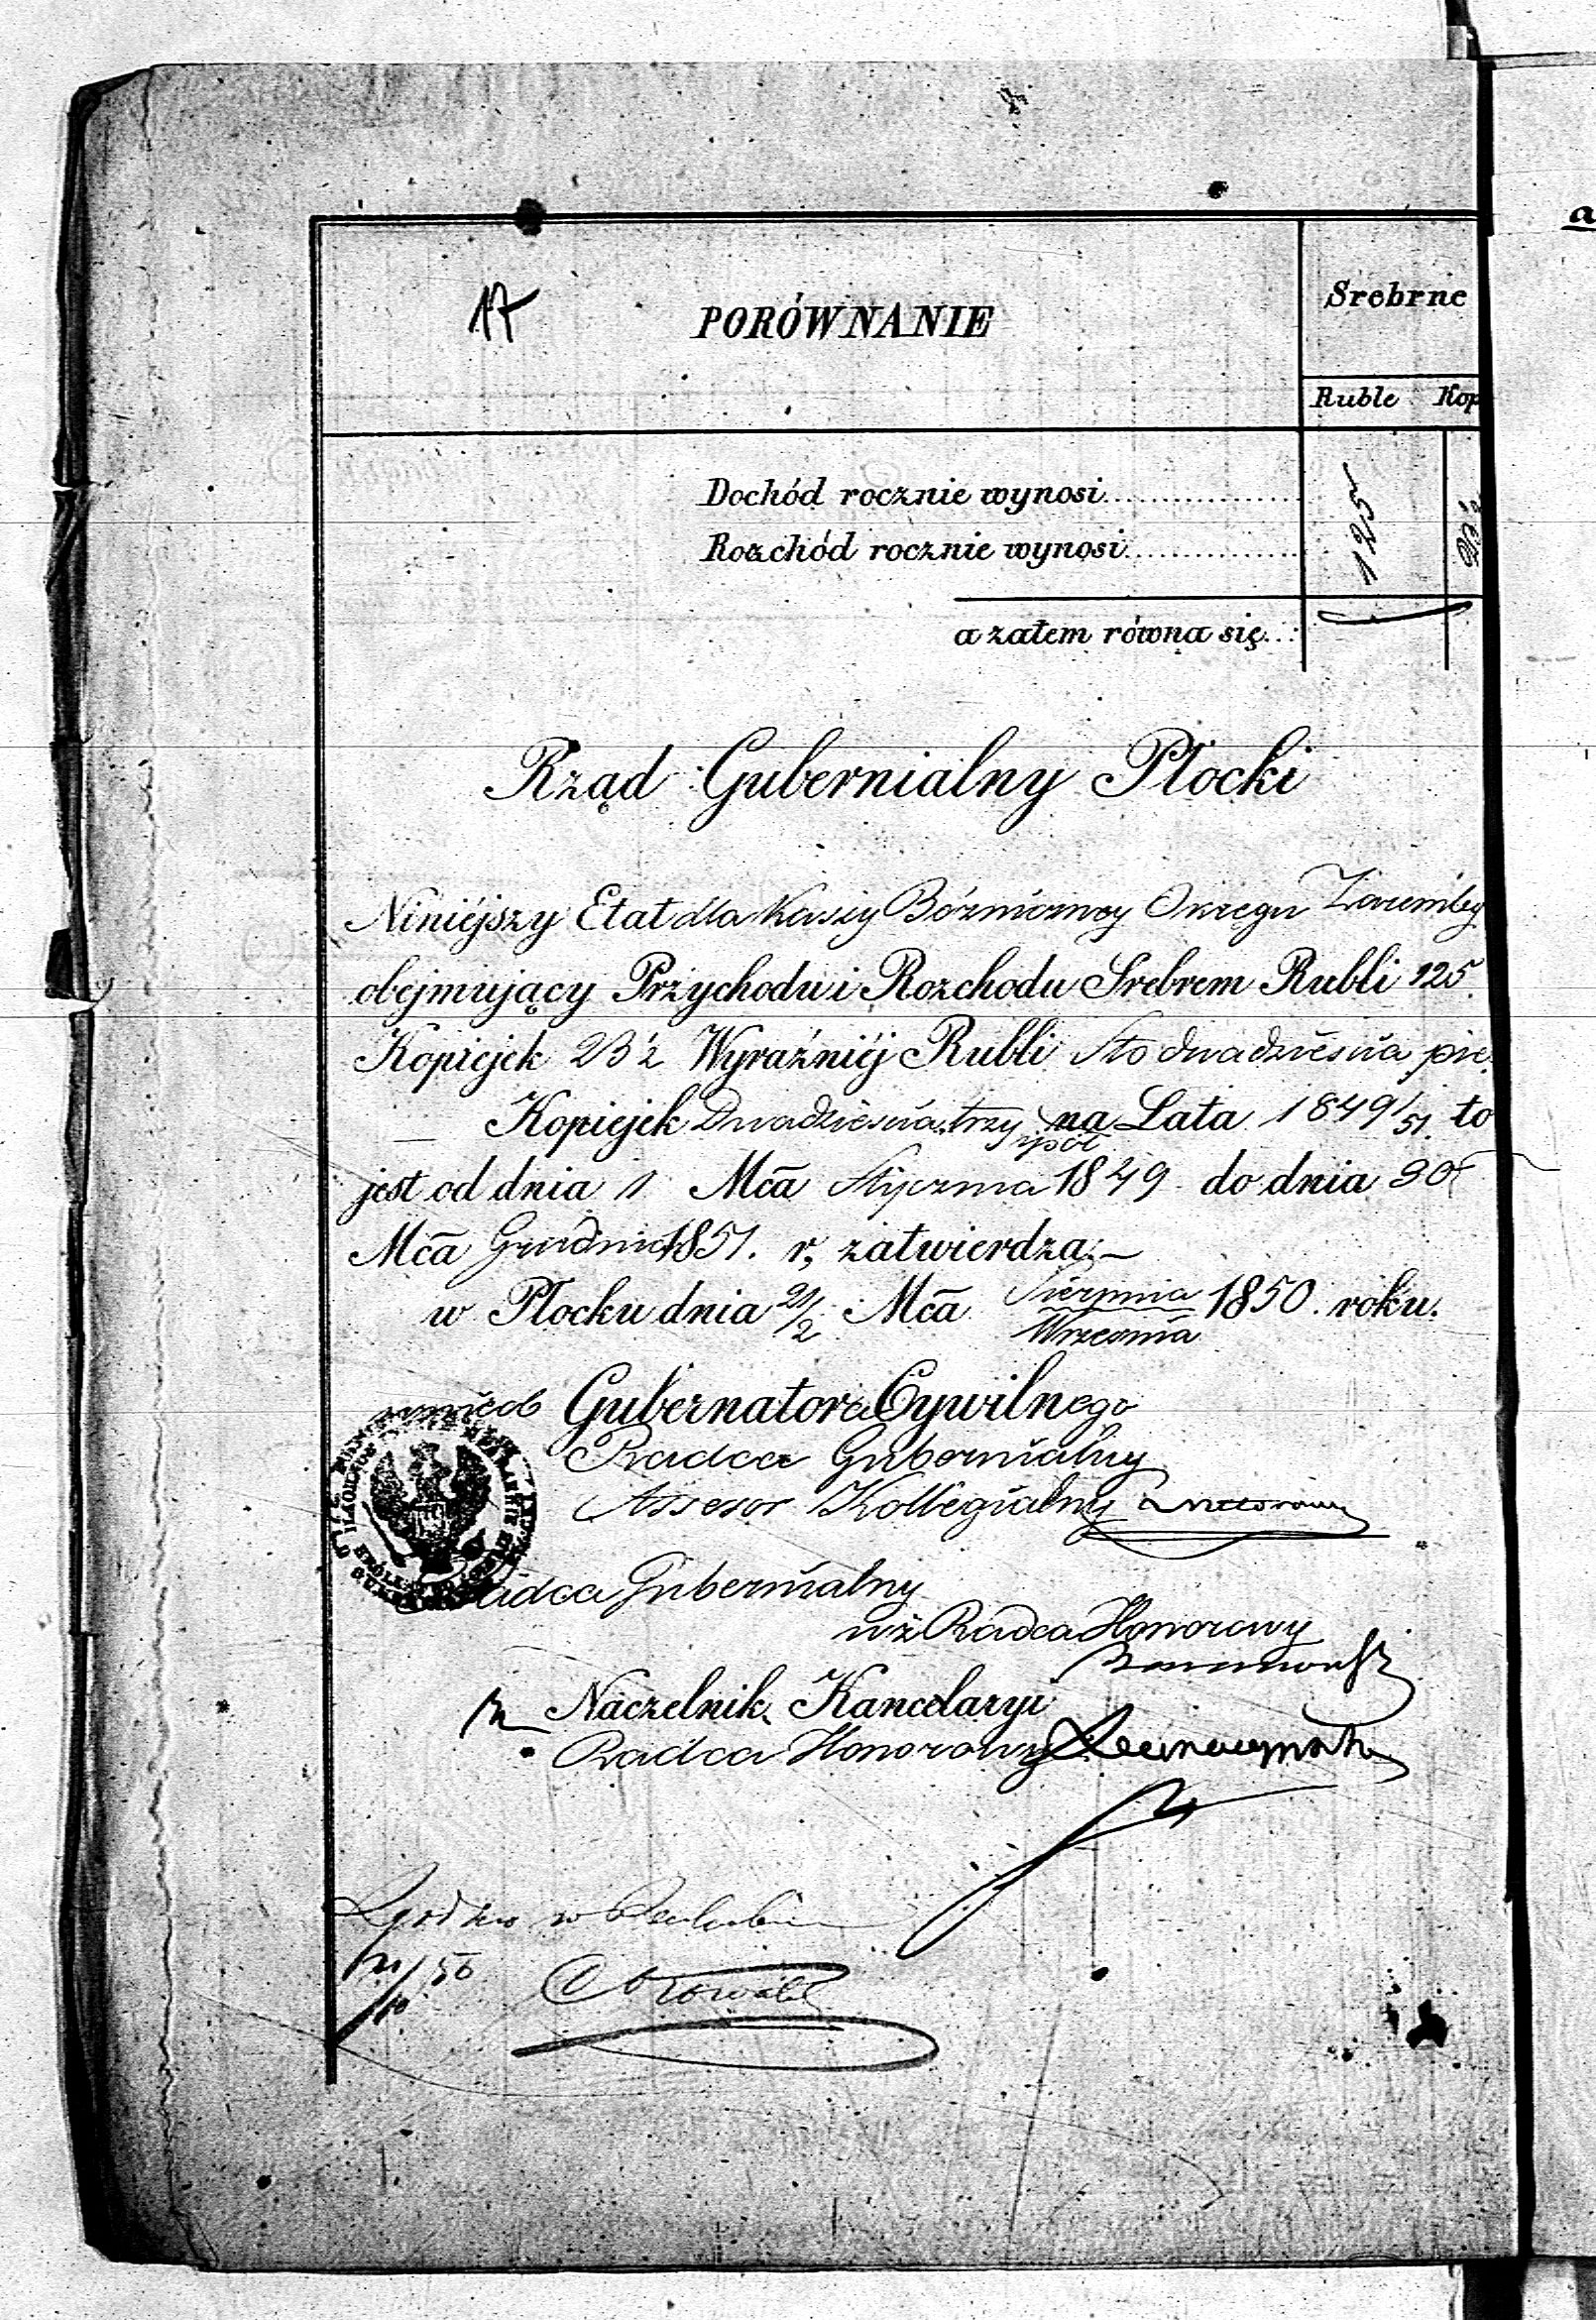 17
PORÓWNANIE
Srebrne
Ruble Kop
Dochód rocznie wynosi
Rozchód rocznie wynosi
125
a zatem równa się
Rząd Gubernialny Płocki
Niniéjszy Etat dla Kassy Bóżniczney Okręgu Zaremby
obejmujący Przychodu i Rozchodu Srebrem Rubli 125.
Kopiejek 23½ Wyraźniéj Rubli Sto dwadzieścia pię
Kopiejek Dwadzieścia trzy i pół na Lata 1849/51. to
jest od dnia 1 Mca Stycznia 1849 do dnia 30
Mca Grudnia 1851. r, zatwierdza.—
w Płocku dnia 21/2 Mca Sierpnia/Września 1850. roku.
Gubernatora Cywilnego
Radca Gubernialny
Assesor Kollegialny
Radca Gubernialny
wz Radca Honorowy
Naczelnik Kancelaryi
Radca Honorowy